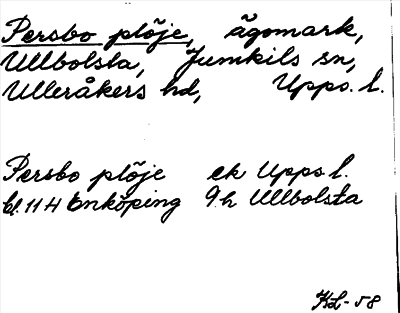 Persbo plöje, ägomark,
Ullbolsta, Jumkils sn,
Ulleråkers hd, Upps. l.
Persbo plöje ek Upps l.
bl. 11 H Enköping 9h Ullbolsta
KL-58